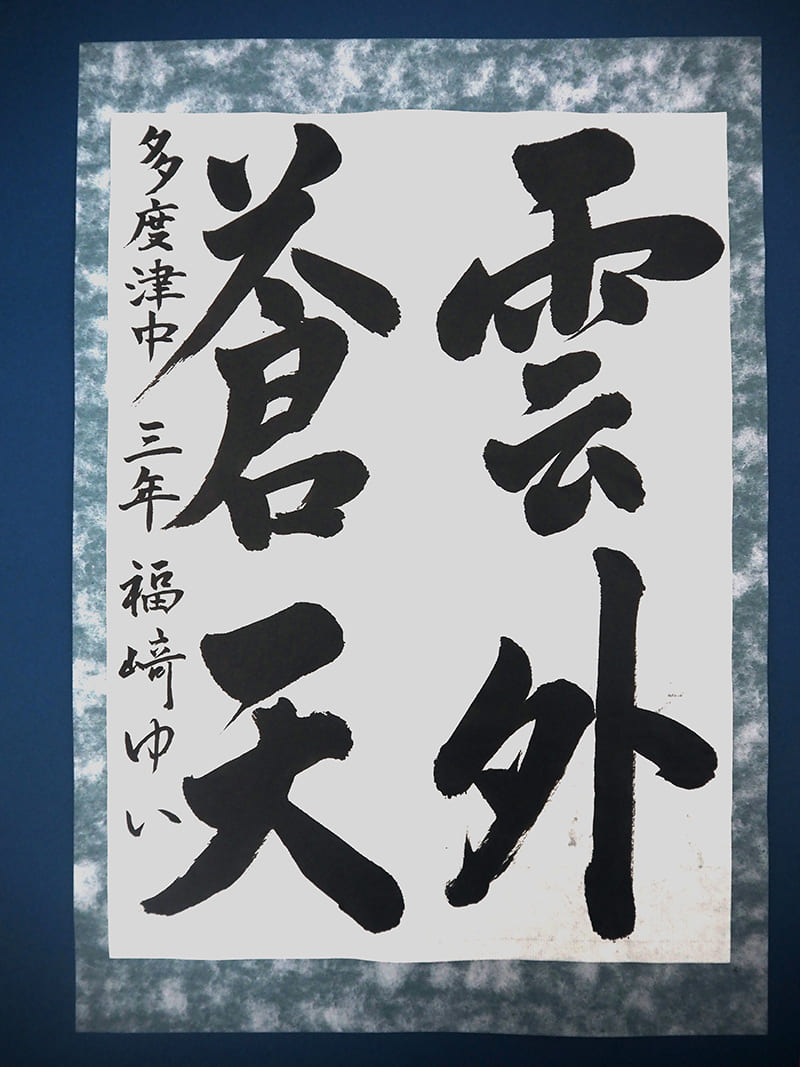 雲外
蒼天
多度津中 三年 福﨑ゆい